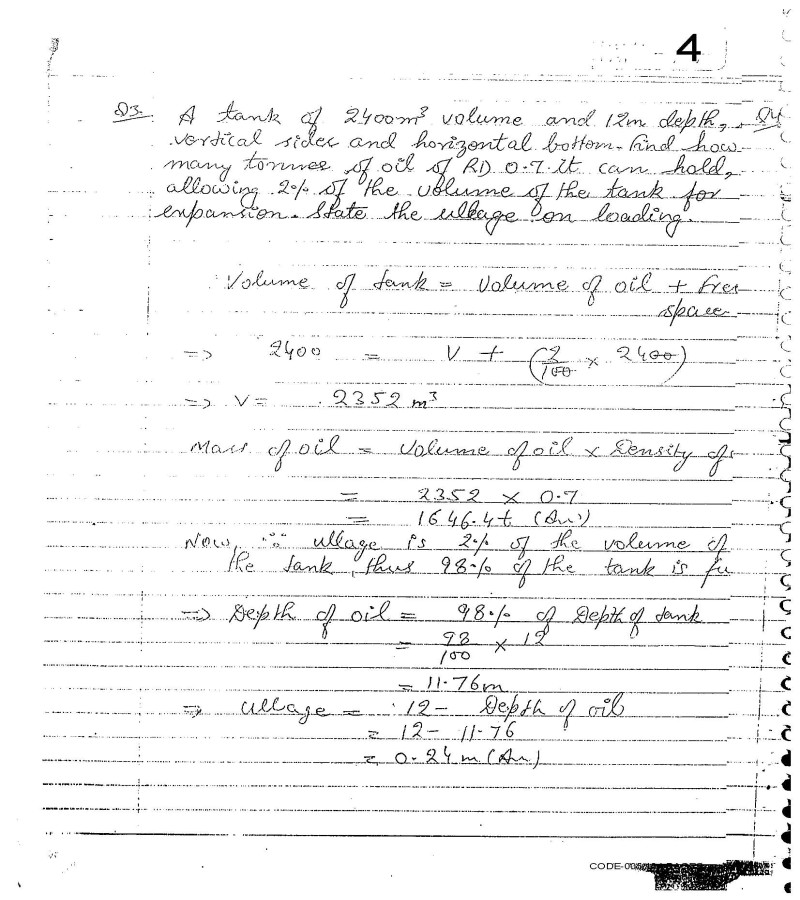 4
Q3. A tank of 2400m³ volume and 12m depth, Q4
vertical sides and horizontal bottom. Find how
many tonnes of oil of RD 0.7 it can hold,
allowing 2% of the volume of the tank for
expansion. State the ullage on loading.
Volume of tank = Volume of oil + free
space
=> 2400 = V + (2/100 × 2400)
=> V = 2352 m³
Mass of oil = Volume of oil × Density of
= 2352 × 0.7
= 1646.4t (Ans)
Now, ∵ ullage is 2% of the volume of
the tank, thus 98% of the tank is fu
=> Depth of oil = 98% of Depth of tank
= 98/100 × 12
= 11.76m
=> Ullage = 12 - Depth of oil
= 12 - 11.76
= 0.24 m (An)